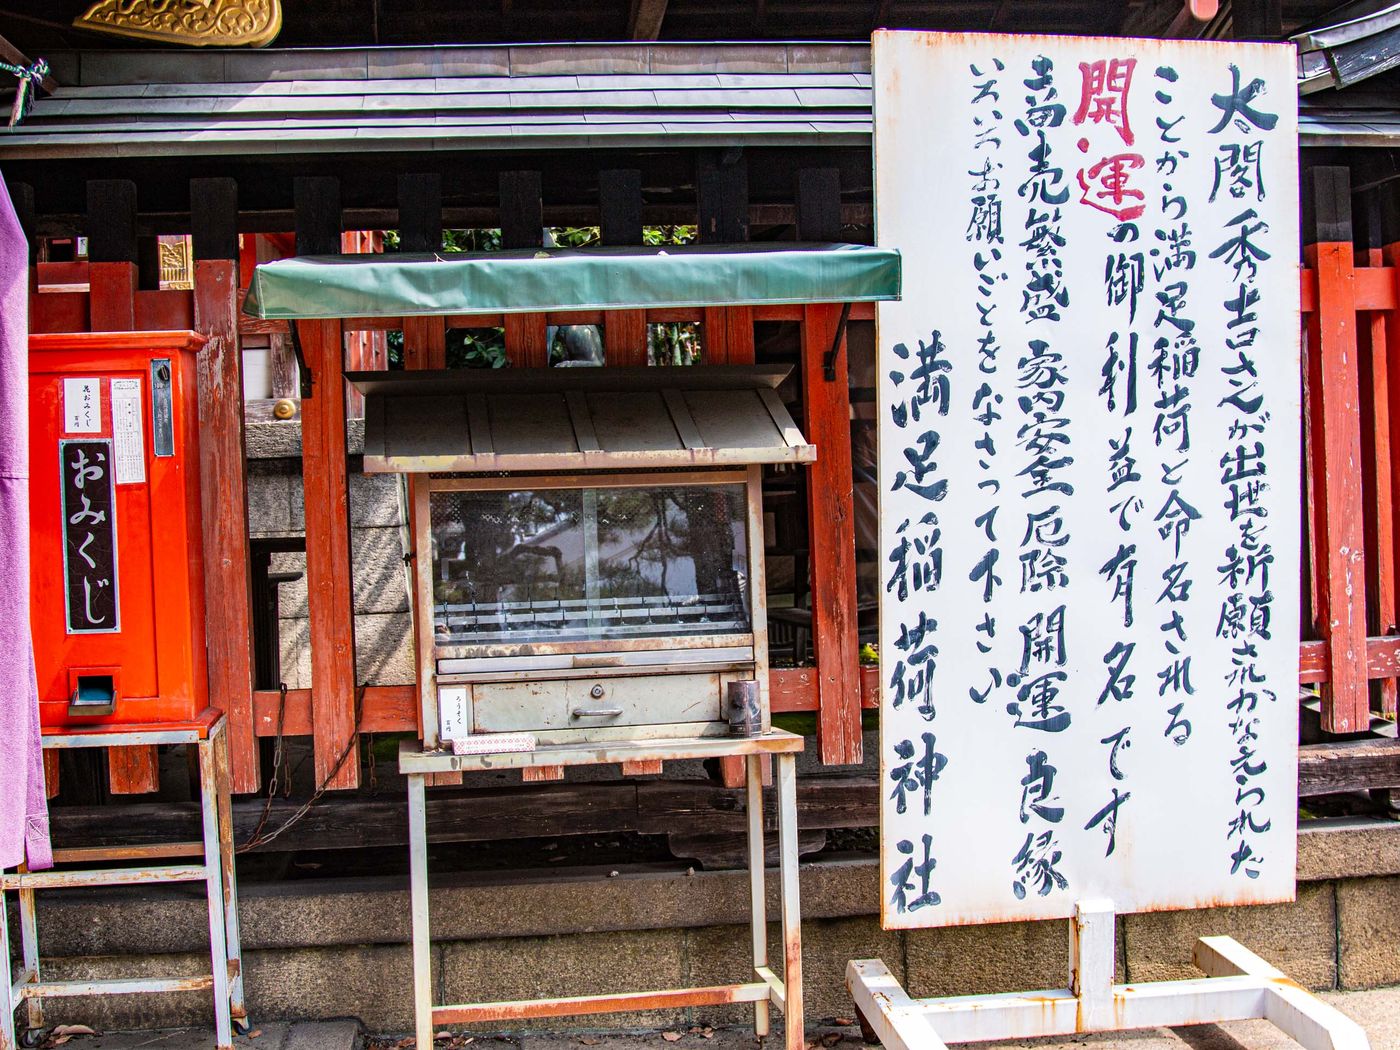 太閤秀吉さんが出世を祈願されかなえられた
ことから満足稲荷と命名される
開運の御利益で有名です
商売繁盛 家内安全 厄除 開運 良縁
いろいろお願いごとをなさって下さい
満足稲荷神社
おみくじ
花おみくじ
百円
ろうそく
百円